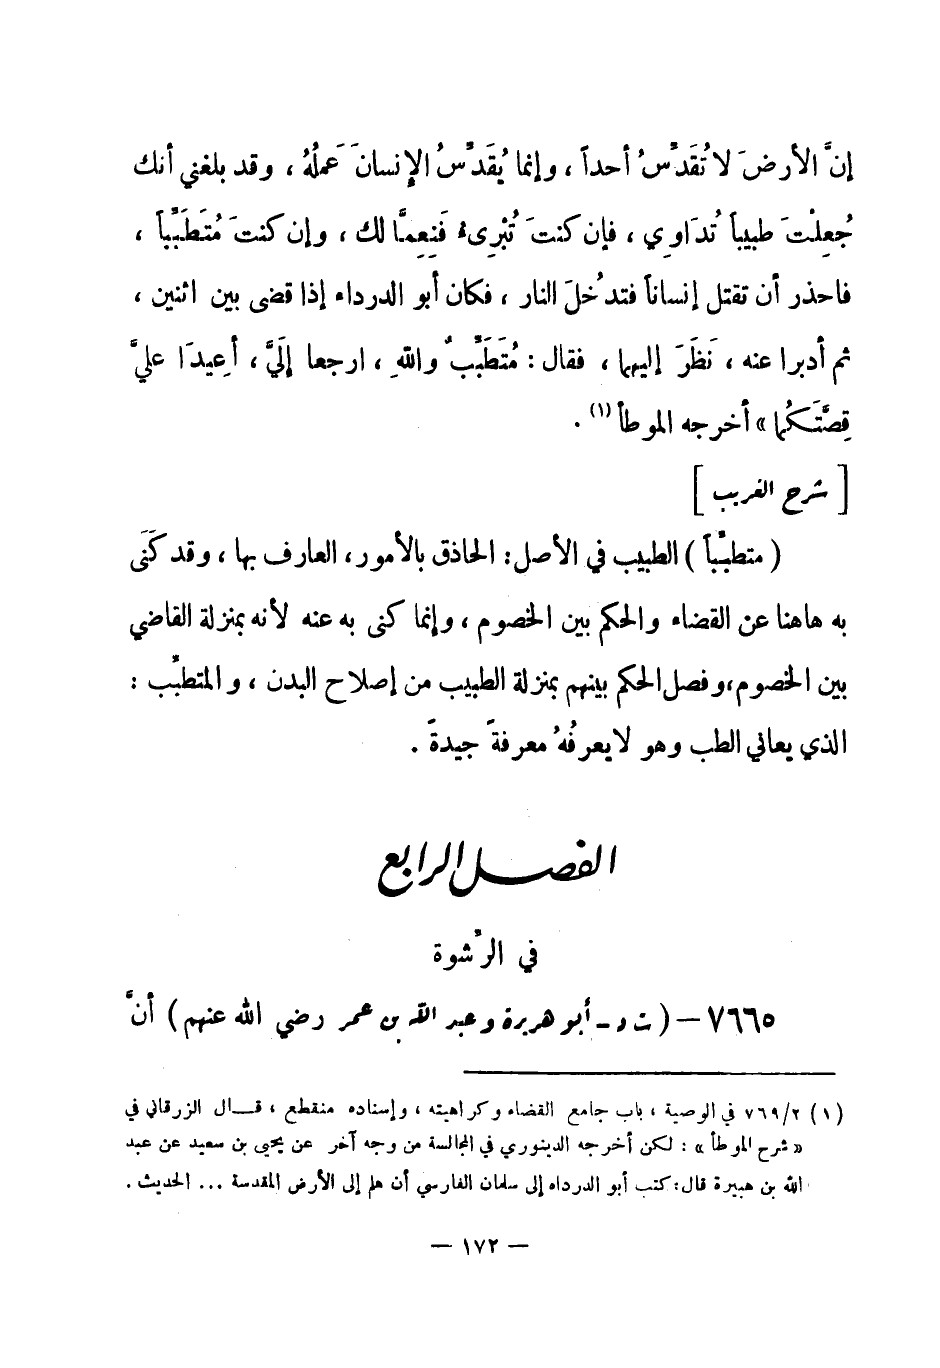 إنَّ الأرضَ لا تُقَدِّسُ أحداً ، وإنما يُقَدِّسُ الإنسانَ عَملُهُ ، وقد بلغني أنك
جُعِلْتَ طبيباً تُدَاوِي ، فإن كنتَ تُبْرِىءُ فَنِعِمَّا لك ، وإن كنتَ مُتَطَبِّباً ،
فاحذر أن تقتل إنساناً فتدخُلَ النار ، فكان أبو الدرداء إذا قضى بين اثنين ،
ثم أدبرا عنه ، نَظَرَ إليهما ، فقال : مُتَطَبِّبٌ واللهِ ، ارجعا إلَيَّ ، أعِيدَا عليَّ
قِصَّتَكُما » أخرجه الموطأ (١) .
[ شرح الغريب ]
( متطبِّباً ) الطبيب في الأصل : الحاذق بالأمور ، العارف بها ، وقد كَنَى
به هاهنا عن القضاء والحكم بين الخصوم ، وإنما كنى به عنه لأنه بمنزلة القاضي
بين الخصوم ،وفصل الحكم بينهم بمنزلة الطبيب من إصلاح البدن ، والمتطبِّب :
الذي يعاني الطب وهو لا يعرفُهُ معرفةً جيدةً .
الفصل الرابع
في الرِّشوة
٧٦٦٥ – ( ت د – أبو هريرة وعبد الله بن عمر رضي الله عنهم ) أنَّ
(١) ٧٦٩/٢ في الوصية ، باب جامع القضاء وكراهيته ، وإسناده منقطع ، قـال الزرقاني في
« شرح الموطأ » : لكن أخرجه الدينوري في المجالسة من وجه آخر عن يحيى بن سعيد عن عبد
الله بن هبيرة قال : كتب أبو الدرداء إلى سلمان الفارسي أن هلم إلى الأرض المقدسة ... الحديث .
– ١٧٢ –